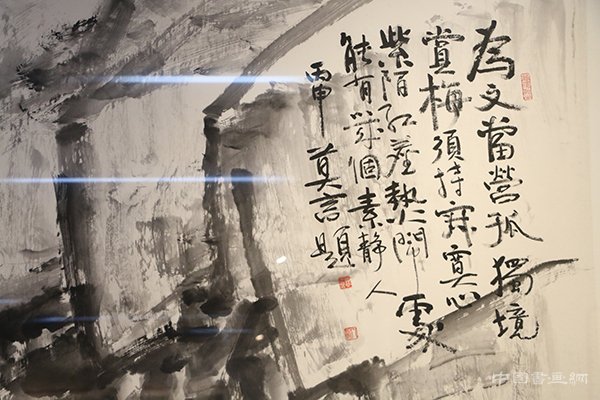 為文當營孤獨境
賞梅須持寂寞心
紫陌紅塵熱鬧處
能有幾個素靜人
丙申 莫言題
中國書畫網